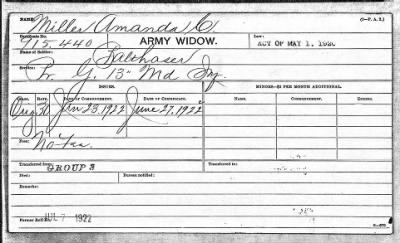 NAME, Miller Amanda C (3-F. A. 2.)
Certificate No. 915.440 ARMY WIDOW. Law: ACT OF MAY 1, 1920.
Name of Soldier: Balthaser
Service: Pr. G. 13" Md Inf.
CLASS. DATE OF COMMENCEMENT. DATE OF CERTIFICATE. MINORS—$2 PER MONTH ADDITIONAL.
NAME. COMMENCEMENT.
Orig 30 Jan 23, 1922 June 27, 1922
Fees: No Fee
Transferred from GROUP 3
Died: Bureau notified:
Remarks:
Former Roll No. JUL 7 1922